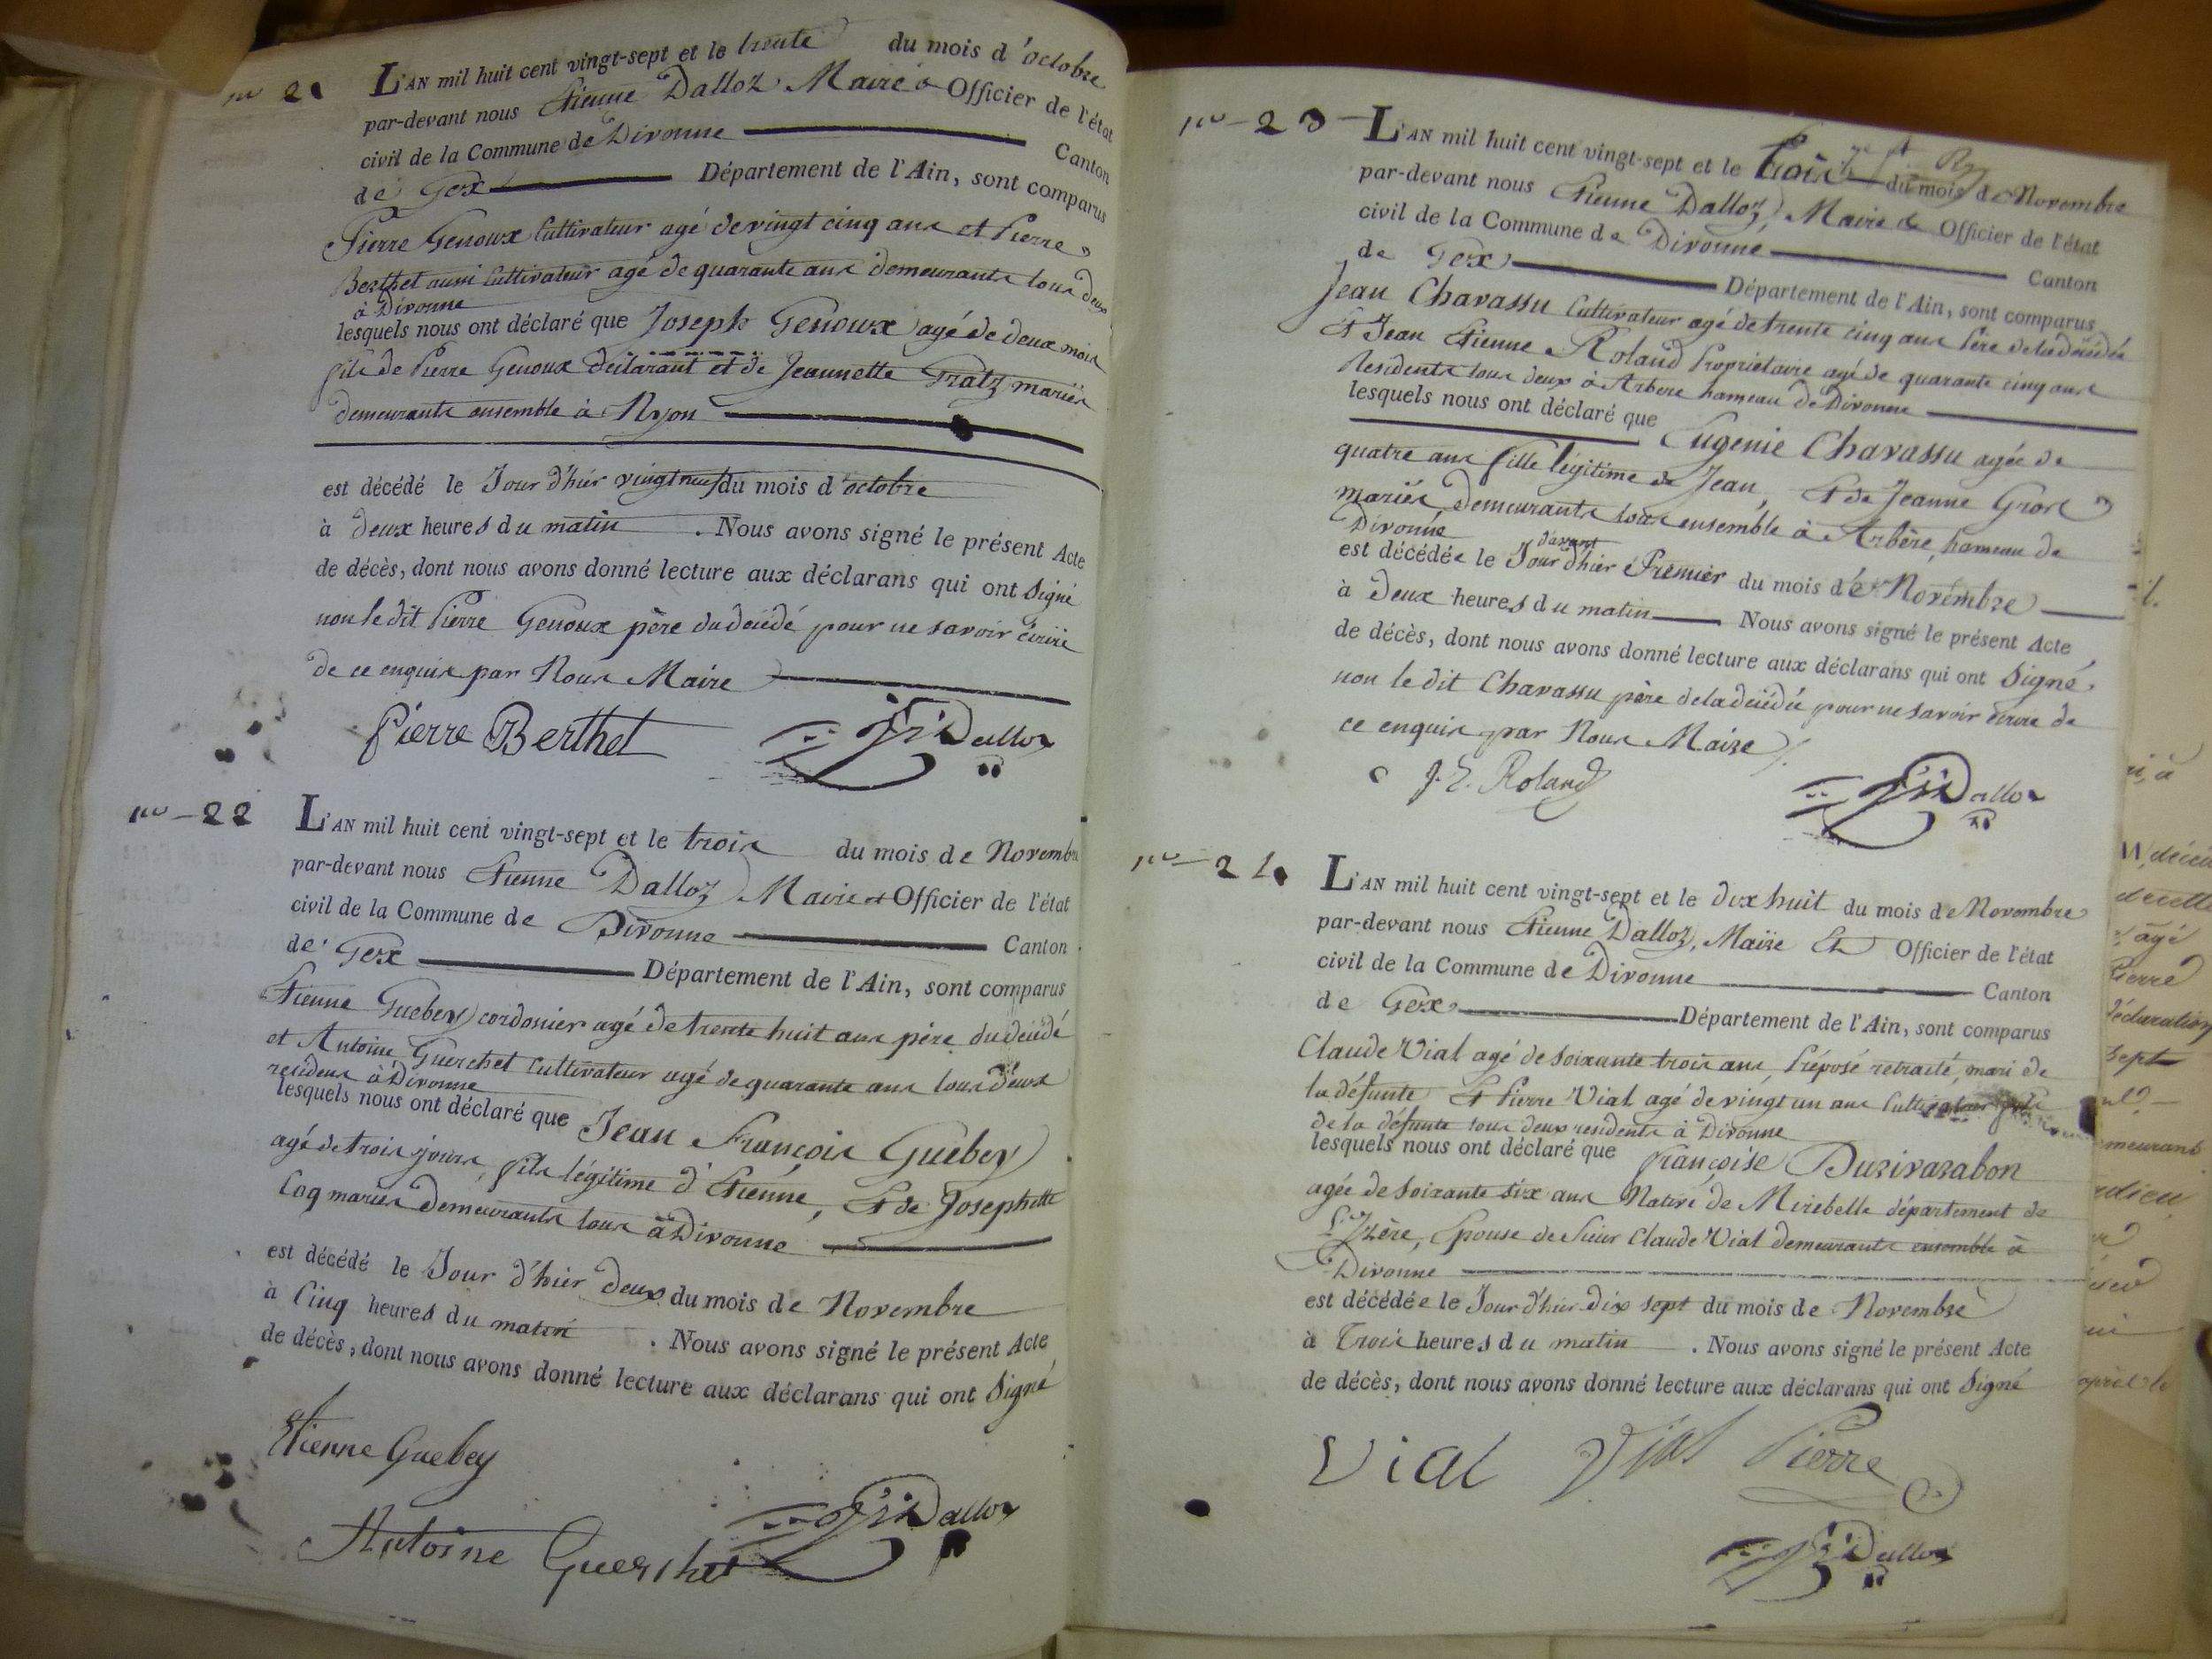 no 21
L'AN mil huit cent vingt-sept et le trente du mois d'octobre
par-devant nous Etienne Dalloz Maire & Officier de l'état
civil de la Commune de Divonne Canton
de Gex Département de l'Ain, sont comparus
Pierre Genoux Cultivateur agé de vingt cinq ans et Pierre
Berthet aussi Cultivateur agé de quarante ans demeurants tous deux
à Divonne
lesquels nous ont déclaré que Joseph Genoux agé de deux mois
fils de Pierre Genoux déclarant et de Jeannette Fratz mariés
demeurants ensemble à Nyon
est décédé le Jour d'hier vingt neuf du mois d'octobre
à deux heures du matin . Nous avons signé le présent Acte
de décès, dont nous avons donné lecture aux déclarans qui ont Signé
non le dit Pierre Genoux père du décédé pour ne savoir écrire
de ce enquis par Nous Maire
Pierre Berthet Dalloz
no - 22
L'AN mil huit cent vingt-sept et le trois du mois de Novembre
par-devant nous Etienne Dalloz Maire et Officier de l'état
civil de la Commune de Divonne Canton
de Gex Département de l'Ain, sont comparus
Etienne Guebey cordonier agé de trente huit ans père du décédé
et Antoine Guerchet Cultivateur agé de quarante ans tous deux
residens à Divonne
lesquels nous ont déclaré que Jean François Guebey
agé de trois jours, fils légitime d'Etienne, Et de Josephette
Coq mariés demeurants tous à Divonne
est décédé le Jour d'hier deux du mois de Novembre
à Cinq heures du matin . Nous avons signé le présent Acte
de décès, dont nous avons donné lecture aux déclarans qui ont Signé
Etienne Guebey
Antoine Guerchet Dalloz
no - 23
L'AN mil huit cent vingt-sept et le trois du mois de Novembre
par-devant nous Etienne Dalloz, Maire & Officier de l'état
civil de la Commune de Divonne Canton
de Gex Département de l'Ain, sont comparus
Jean Chavassu Cultivateur agé de trente cinq ans Père de la décédée
Et Jean Etienne Roland Propriétaire agé de quarante cinq ans
Residents tous deux à Arbere hameau de Divonne
lesquels nous ont déclaré que Eugenie Chavassu agée de
quatre ans fille légitime de Jean, Et de Jeanne Gros
mariés demeurants tous ensemble à Arbère, hameau de
Divonne
est décédée le Jour davant d'hier Premier du mois de Novembre
à deux heures du matin Nous avons signé le présent Acte
de décès, dont nous avons donné lecture aux déclarans qui ont Signé,
non le dit Chavassu père de la décédée pour ne savoir écrire de
ce enquis par Nous Maire
J. E. Roland Dalloz
no - 24
L'AN mil huit cent vingt-sept et le dix huit du mois de Novembre
par-devant nous Etienne Dalloz, Maire Et Officier de l'état
civil de la Commune de Divonne Canton
de Gex Département de l'Ain, sont comparus
Claude Vial agé de soixante trois ans, Préposé retraité, mari de
la défunte Et Pierre Vial agé de vingt un ans Cultivateur fils
de la défunte tous deux residents à Divonne
lesquels nous ont déclaré que françoise Burivarabon
agée de soixante six ans Native de Mirebelle département de
l'Izère, Epouse de Sieur Claude Vial demeurants ensemble à
Divonne
est décédée le Jour d'hier dix sept du mois de Novembre
à Trois heures du matin . Nous avons signé le présent Acte
de décès, dont nous avons donné lecture aux déclarans qui ont Signé
Vial Vial Pierre
Dalloz